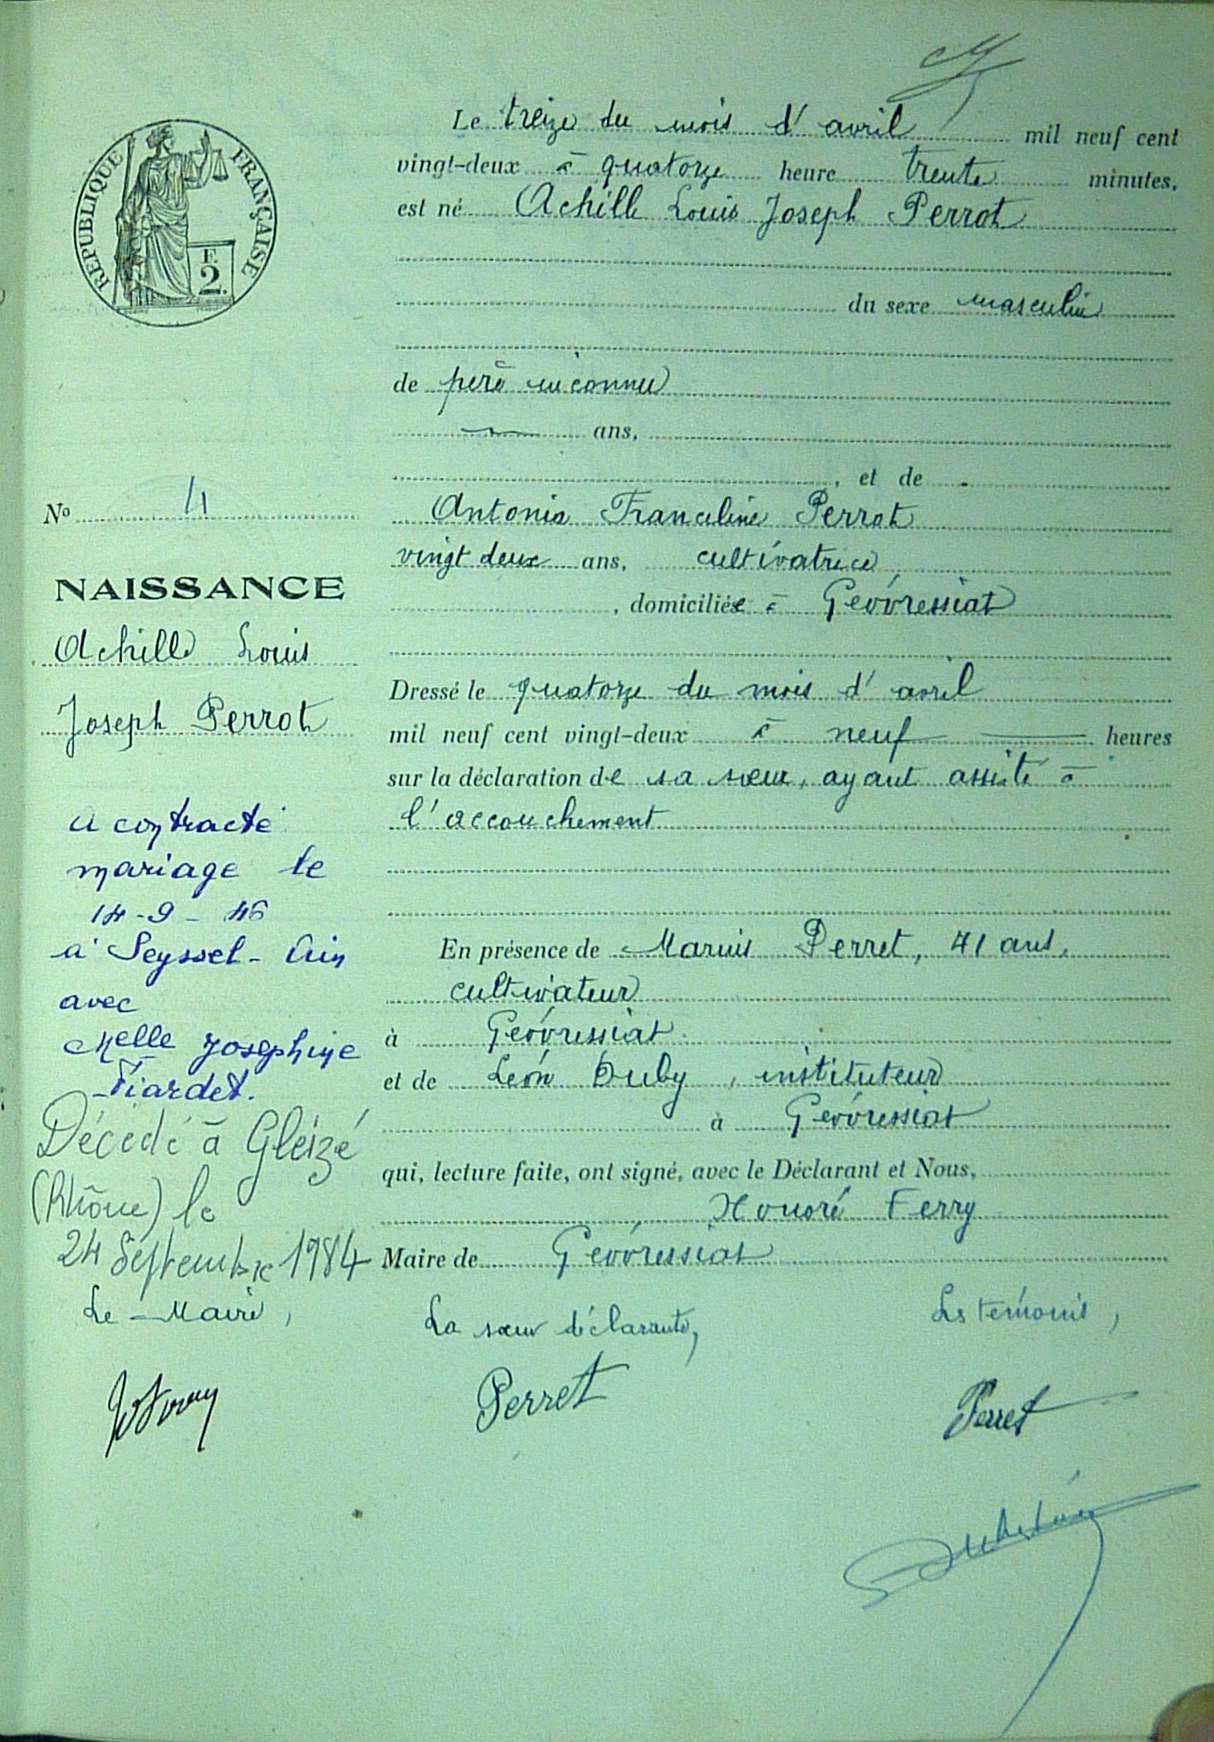 RÉPUBLIQUE FRANÇAISE
F.
2.
Le treize du mois d'avril mil neuf cent
vingt-deux à quatorze heure trente minutes,
est né Achille Louis Joseph Perrot
du sexe masculin
de père inconnu
ans,
, et de
Antonia Franceline Perrot
vingt deux ans, cultivatrice
, domiciliée à Géovressiat
Dressé le quatorze du mois d'avril
mil neuf cent vingt-deux à neuf heures
sur la déclaration de sa sœur, ayant assisté à
l'accouchement
En présence de Marius Perret, 41 ans,
cultivateur
à Géovressiat
et de Léon Duby, instituteur
à Géovressiat
qui, lecture faite, ont signé, avec le Déclarant et Nous,
Honoré Ferry
Maire de Géovressiat
No 4
NAISSANCE
Achille Louis
Joseph Perrot
a contracté
mariage le
14-9-46
à Seyssel-Ain
avec
Melle Joséphine
Décédé à Gleizé
(Rhône) le
24 Septembre 1984
Le Maire,
La sœur déclarante,
Les témoins,
Perret
Perret